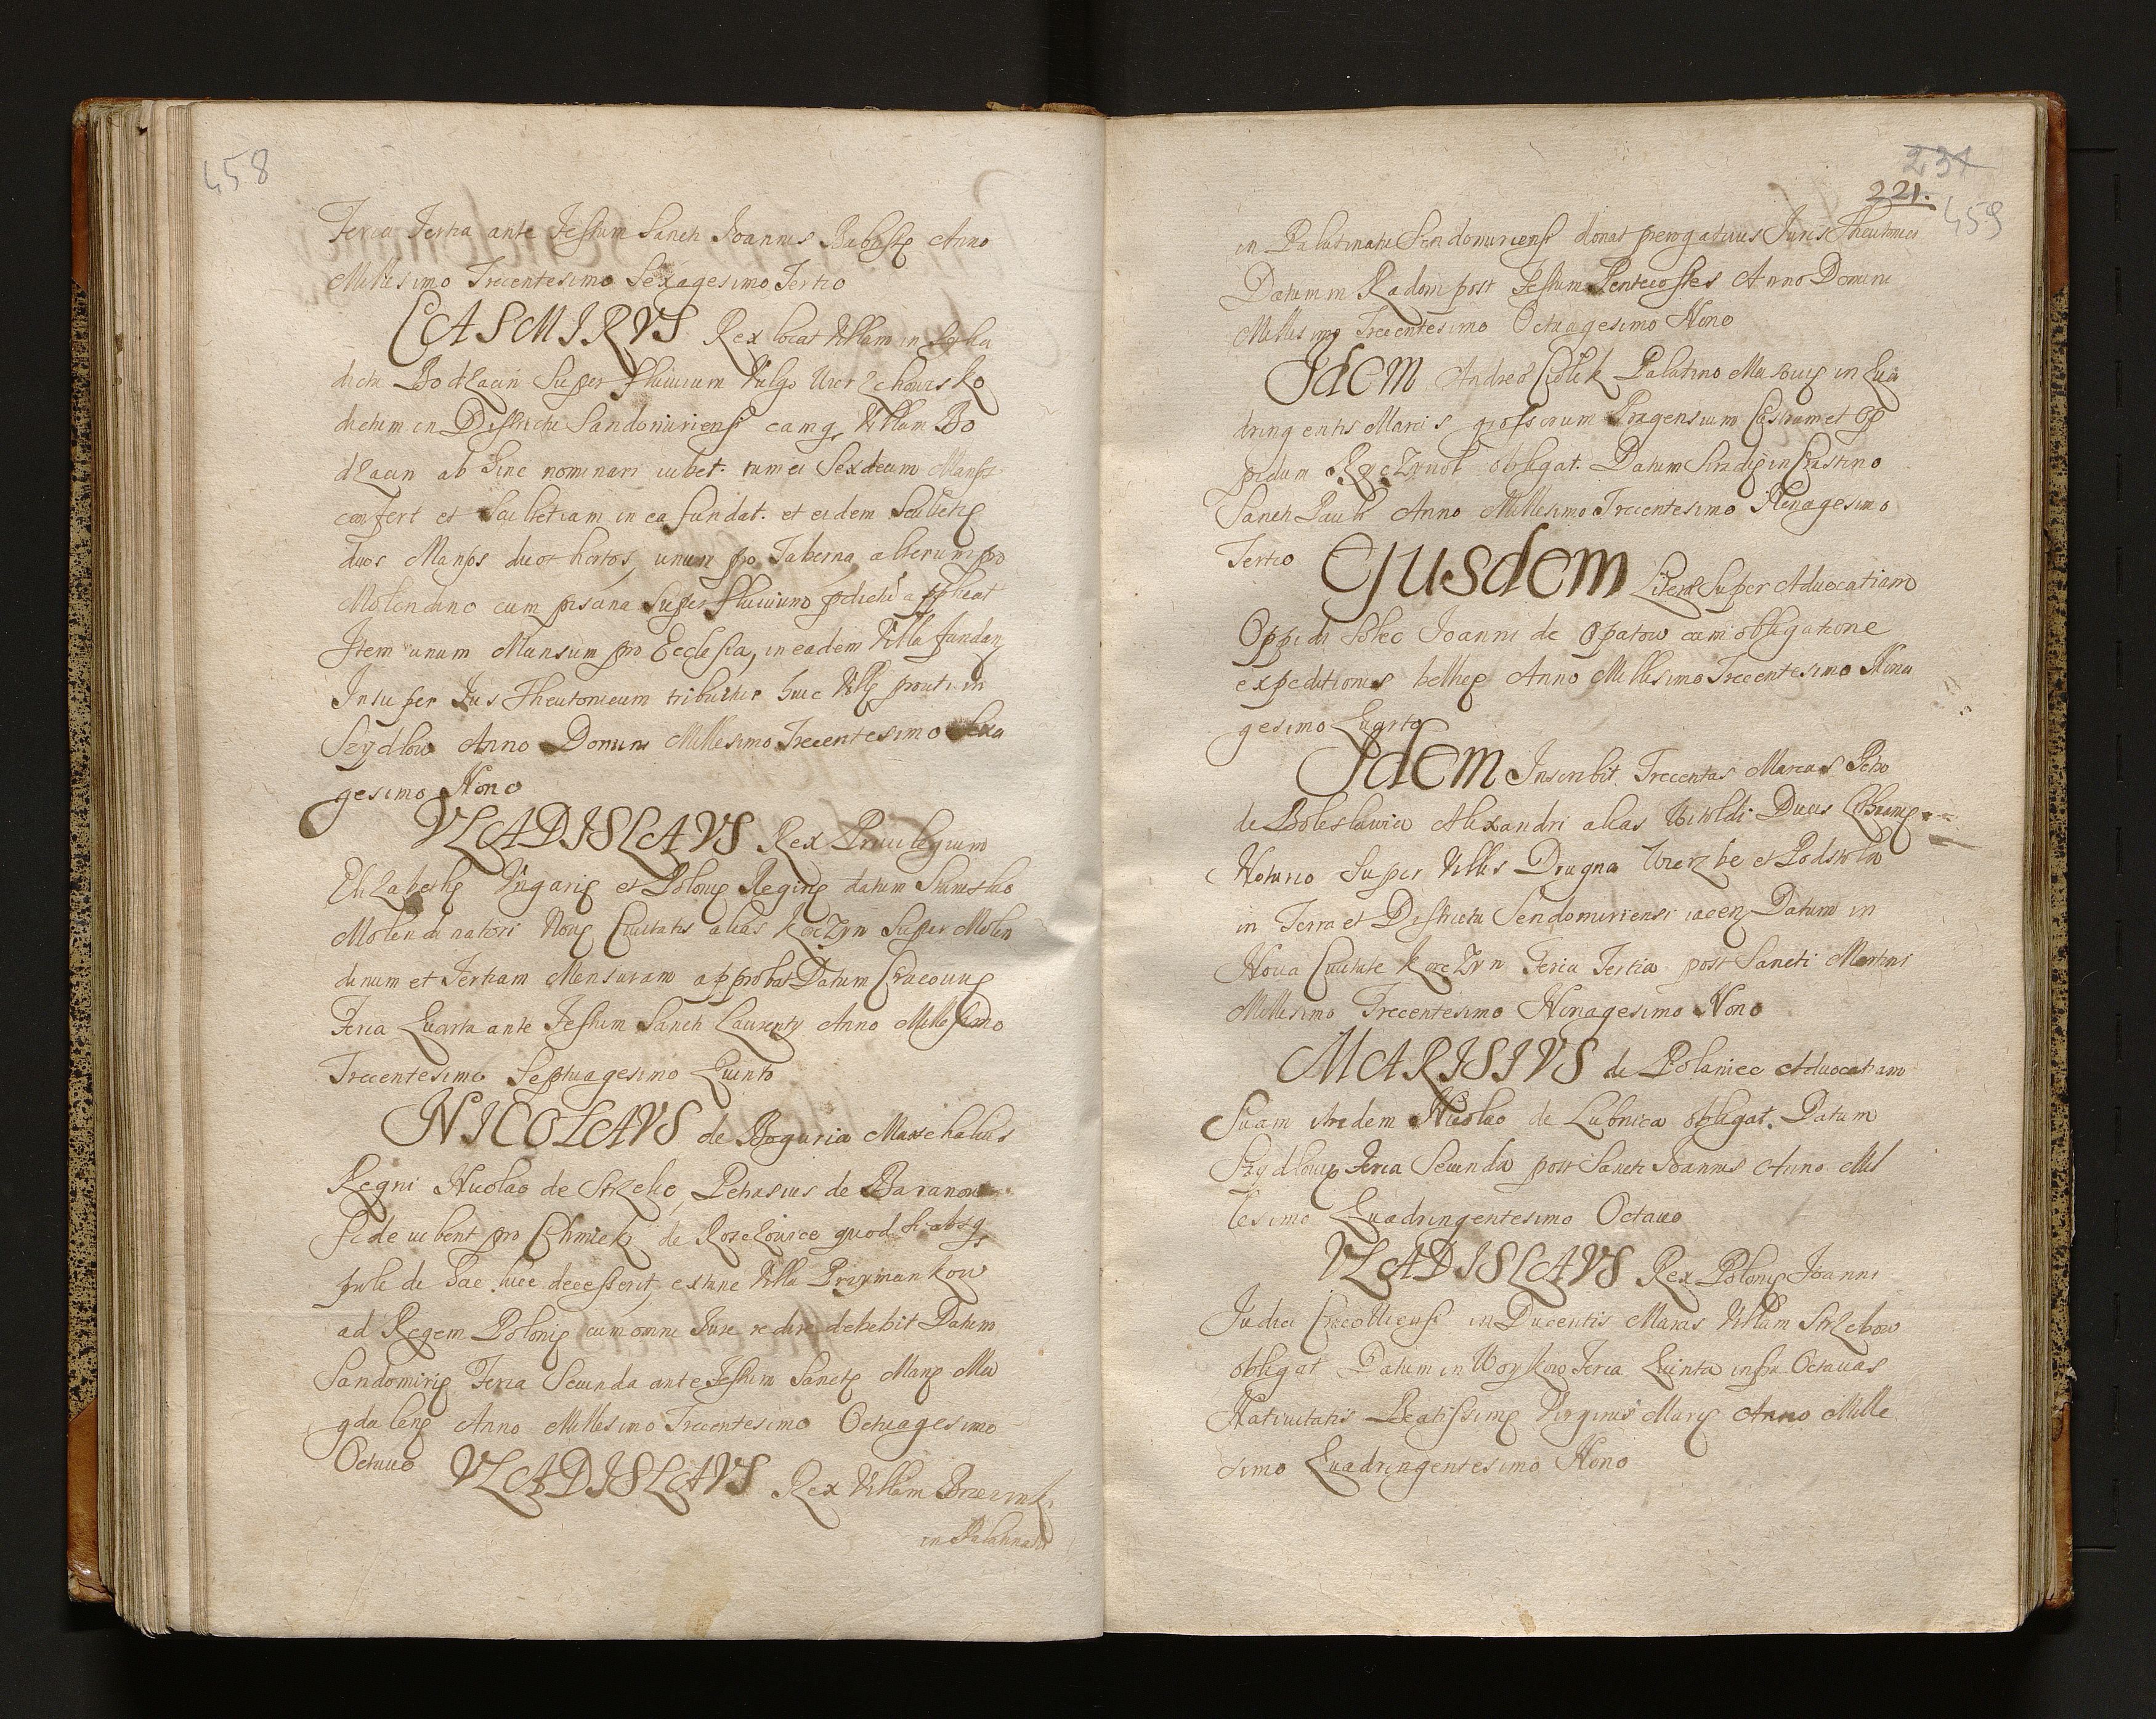 458
Feria Tertia ante Festum Sancti Ioannis Babtistę Anno
Millesimo Trecentesimo Sexagesimo Tertio
CASMIRVS Rex locat Villam in Sylua
dicta Bodzacin Super fluuium Vulgo Wierzchowisko
dictum in Districtu Sandomiriensi eamq Villam Bo
dzacin ab hinc nominari iubet. tum ei Sexdecim Mansos
confert et Scultetiam in ea fundat. et eidem Scultetię
duos Mansos duos hortos, unum pro Taberna alterum pro
Molendino cum pisana Super fluuium pdictu applicat
Item unum Mansum pro Ecclesia, in eadem Villa fundan
Insuper Ius Theutonicum tribuitur huic Villę prout in
Szydlow Anno Domini Millesimo Trecentesimo Sexa
gesimo Nono
VLADISLAVS Rex Priuilegium
Elizabethę Vngarię et Polonię Reginę datum Stanislao
Molendinatori Nouę Ciuitatis alias Korczyn Super Molen
dinum et Tertiam Mensuram approbat Datum Cracouię
Feria Quarta ante Festum Sancti Laurentÿ Anno Millesimo
Trecentesimo Septuagesimo Quinto
NICOLAVS de Boguria Marschalcus
Regni Nicolao de Strzelce, Petrasius de Baranow
fide iubent pro Chmielz de Roszowice quod si absq
prole de hac luce decesserit, extunc Villa Przymankow
ad Regem Polonię cum omni Iure redire debebit Datum
Sandomirię Feria Secunda ante Festum Sanctę Marię Ma
gdalenę Anno Millesimo Trecentesimo Octuagesimo
Octauo VLADISLAVS Rex Villam
in Palatinatu
231
221.
459
in Palatinatu Sendomiriensi donat prerogatiuis Iuris Theutonici
Datum in Radom post Festum Pentecostes Anno Domini
Millesimo Trecentesimo Octuagesimo Nono
Idem Andreę Ciolek Palatino Masouię in Qua
dringentis Marcis grossorum Pragensium Castrum et Op
pidum obligat. Datum Siradię in Crastino
Sancti Pauli Anno Millesimo Trecentesimo Nonagesimo
Tertio Ejusdem Literę Super Aduocatiam
Oppidi Solec Ioanni de Opatow cum obligatione
expeditionis bellicę Anno Millesimo Trecentesimo Nona
gesimo Quarto
Idem Inscribit Trecentas Marcas
de Boleslawia Alexandri alias Witoldi Ducis
Notario Super Villis Drugna Wierzbe et Podstola
in Terra et Districtu Sendomiriensi iacen Datum in
Noua Ciuitate Korczyn Feria Tertia post Sancti Martini
Millesimo Trecentesimo Nonagesimo Nono
MARISIVS de Polaniec Aduocatiam
Suam ibidem Nicolao de Lubnica obligat. Datum
Szydlouię Feria Secunda post Sancti Ioannis Anno Mil
lesimo Quadringentesimo Octauo
VLADISLAVS Rex Polonię Ioanni
Iudici Cracouiensi in Ducentis Marcis Villam Strzelow
obligat Datum in Woykow Feria Quinta infra Octauas
Natiuitatis Beatissimę Virginis Marię Anno Mille
simo Quadringentesimo Nono